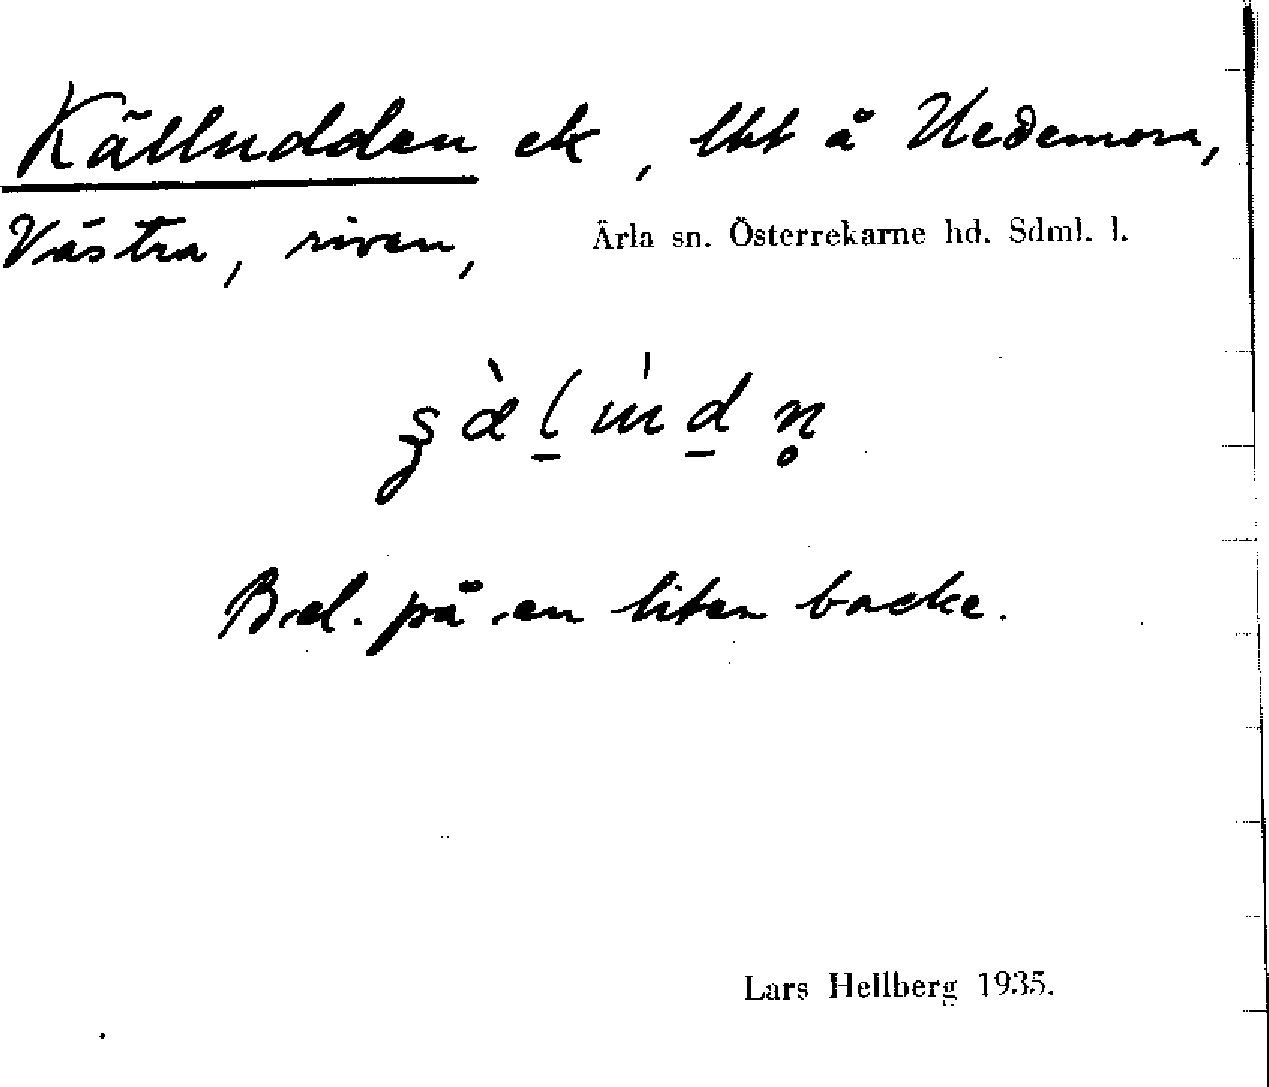 Källudden ek, lht å Hedemora,
Västra, riven, Ärla sn. Österrekarne hd. Sdml. l.
Bel. på en liten backe.
Lars Hellberg 1935.